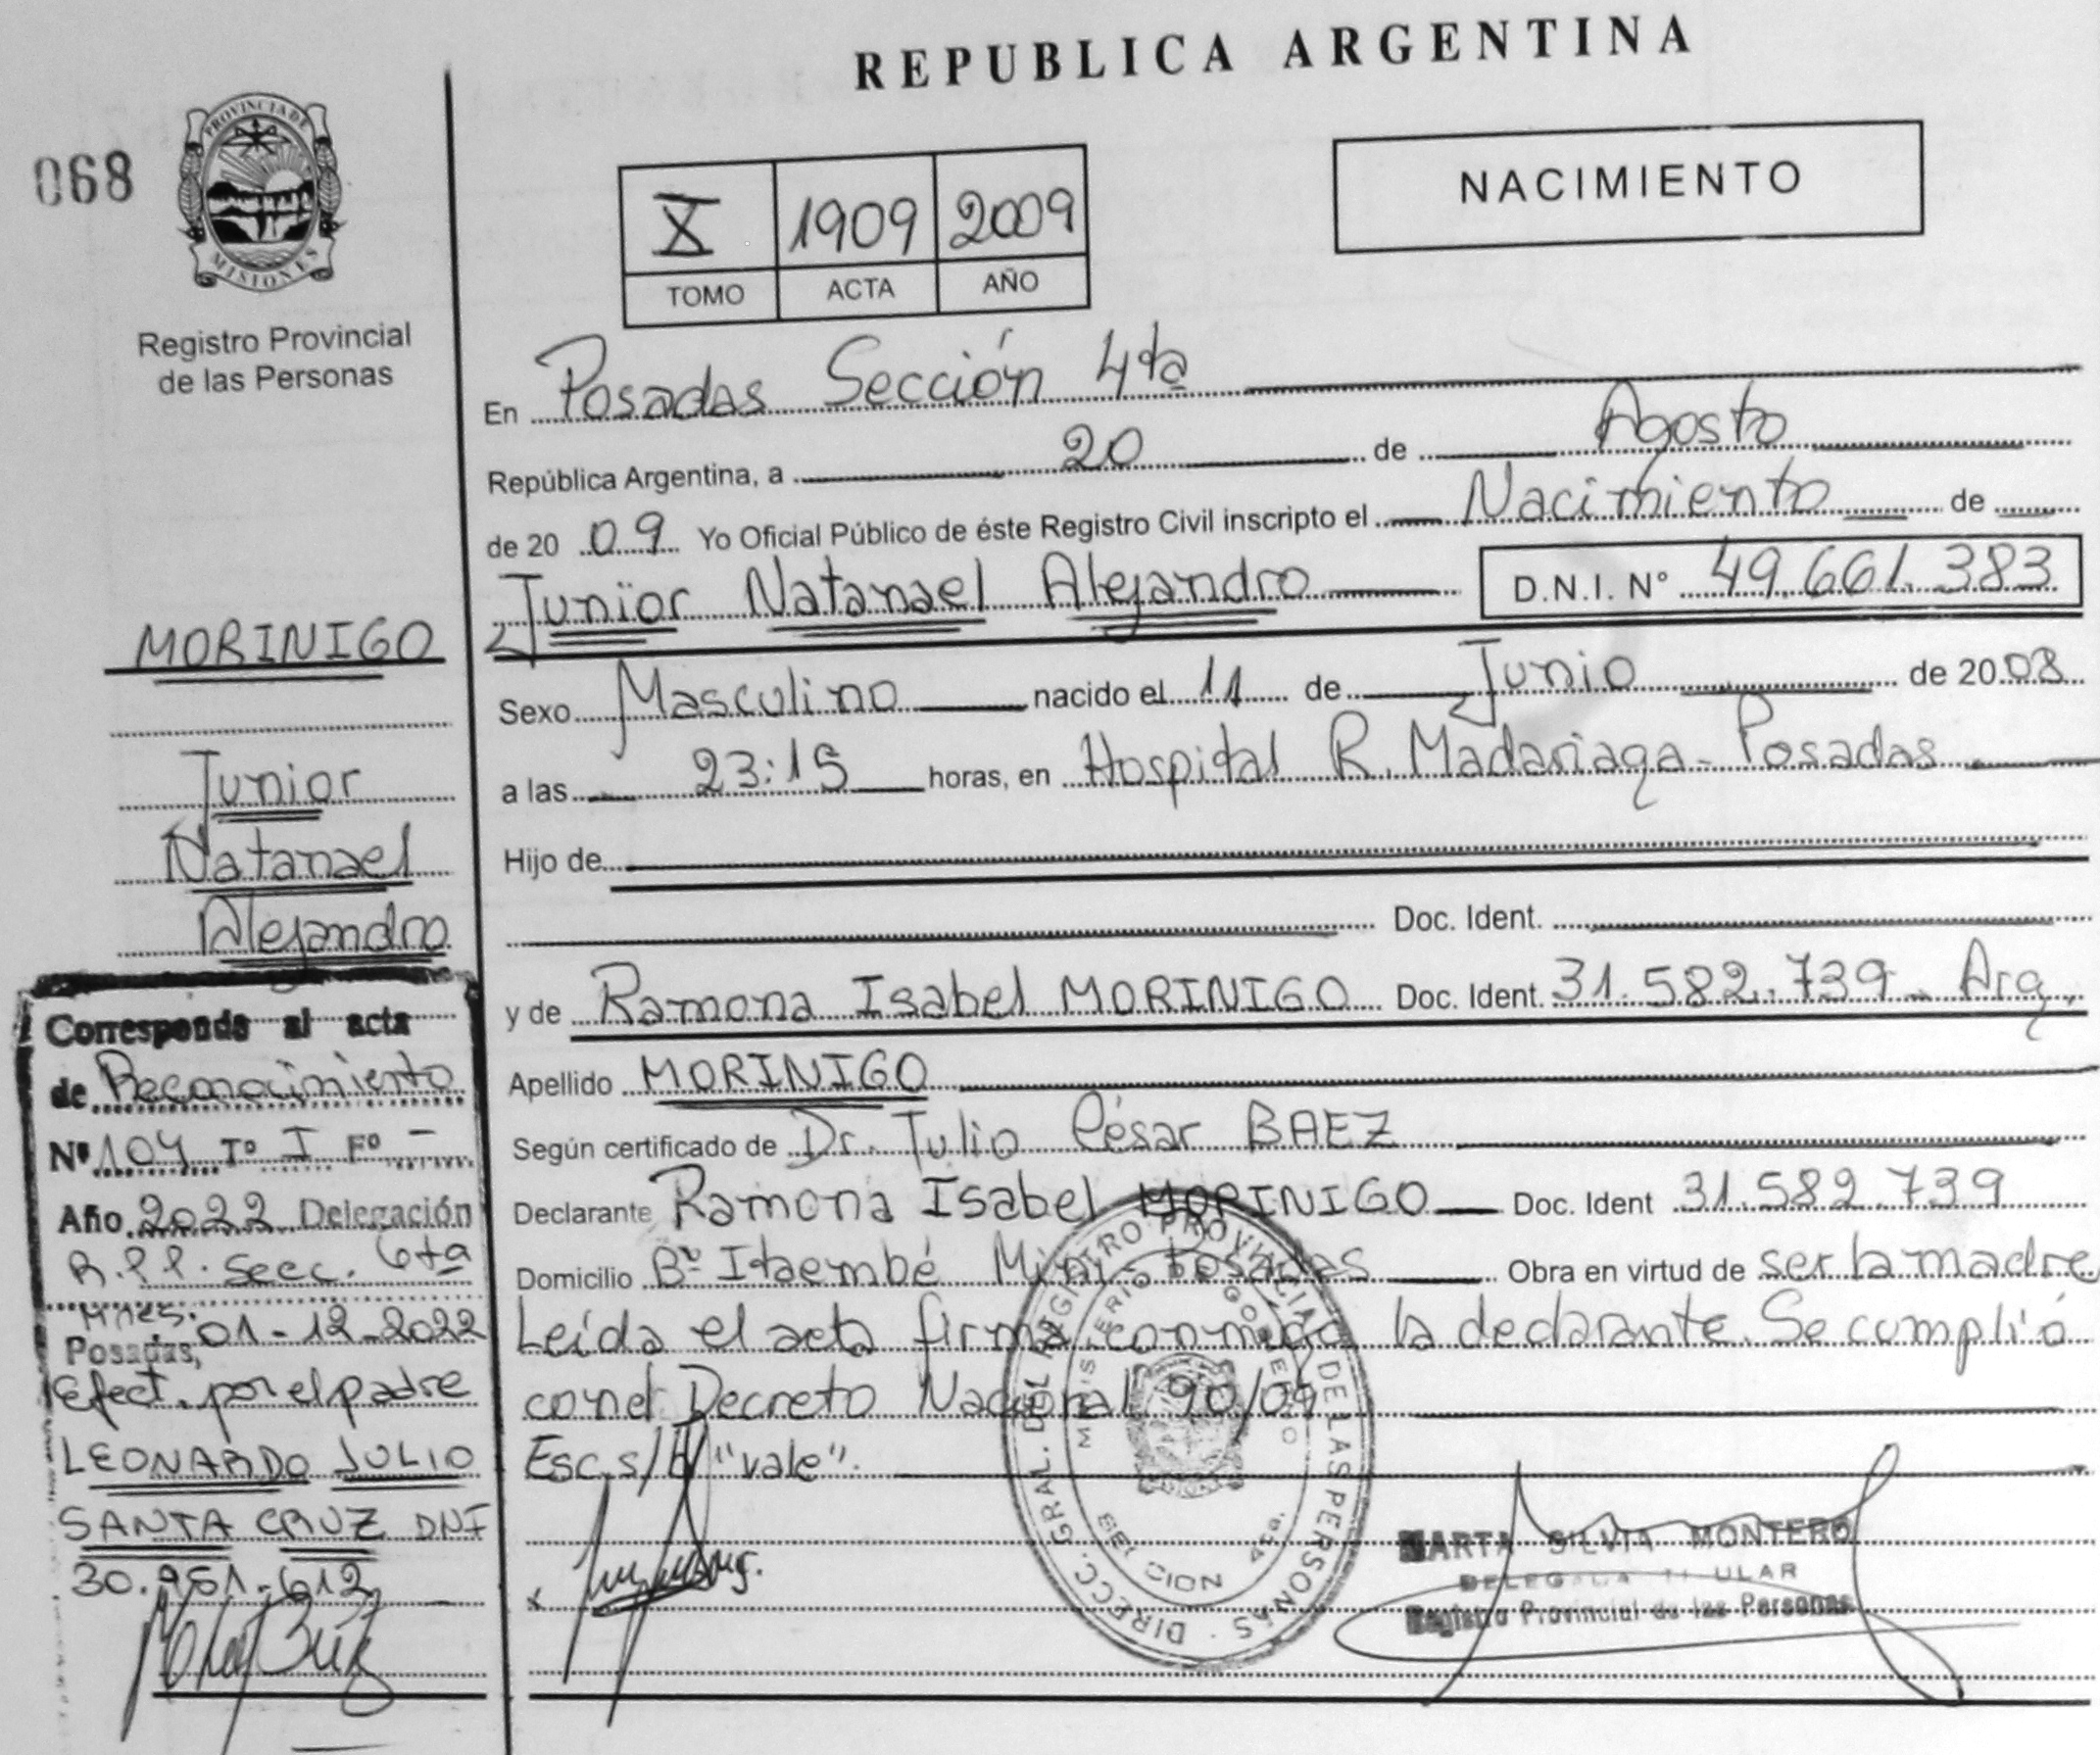 REPUBLICA ARGENTINA
068
PROVINCIA DE
MISIONES
Registro Provincial
de las Personas
X 1909 2009
TOMO ACTA AÑO
NACIMIENTO
En Posadas Sección 4ta
República Argentina, a 20 de Agosto
de 20 09 Yo Oficial Público de éste Registro Civil inscripto el Nacimiento de
Junior Natanael Alejandro D.N.I. N° 49.661.383
Sexo Masculino nacido el 11 de Junio de 20 08
a las 23:15 horas, en Hospital R. Madariaga - Posadas
Hijo de
Doc. Ident.
y de Ramona Isabel MORINIGO Doc. Ident. 31.582.739 - Arg.
Apellido MORINIGO
Según certificado de Dr. Julio César BAEZ
Declarante Ramona Isabel MORINIGO Doc. Ident 31.582.739
Domicilio B° Itaembé Miní - Posadas Obra en virtud de ser la madre
Leída el acta firma conmigo la declarante. Se cumplió
con el Decreto Nacional 90/09
Esc. s/ "vale".
MORINIGO
Junior
Natanael
Alejandro
Corresponde al acta
de Reconocimiento
N° 104 T° I F° -
Año 2022 Delegación
R.P.P. Secc. 6ta
Mnes.
Posadas, 01-12-2022
Efect. por el padre
LEONARDO JULIO
SANTA CRUZ DNI
30.951.612
DIRECC. GRAL. DEL REGISTRO PROVINCIAL DE LAS PERSONAS
MINISTERIO GOBIERNO
4ta.
MARTA SILVIA MONTERO
DELEGADA TITULAR
Registro Provincial de las Personas